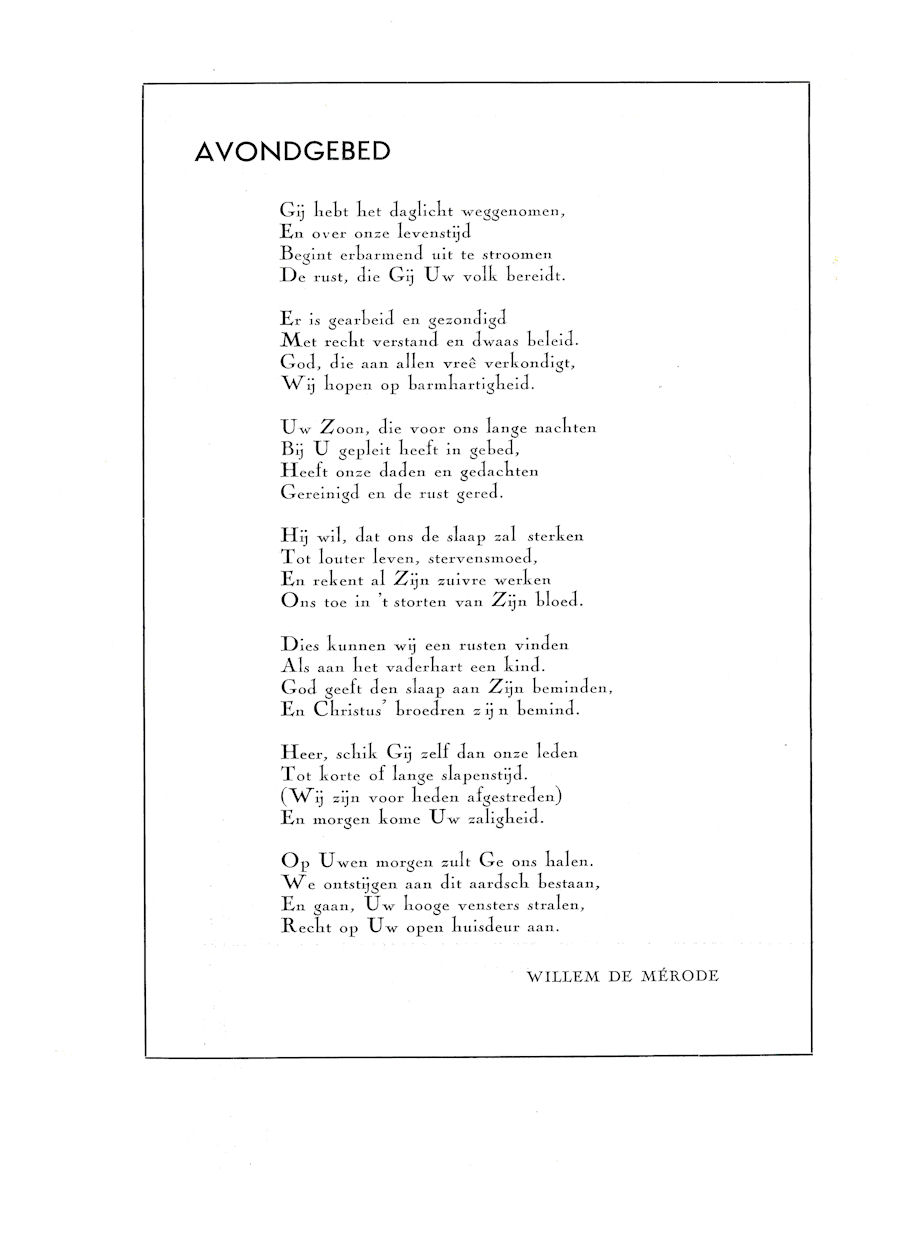 AVONDGEBED
Gij hebt het daglicht weggenomen,
En over onze levenstijd
Begint erbarmend uit te stroomen
De rust, die Gij Uw volk bereidt.
Er is gearbeid en gezondigd
Met recht verstand en dwaas beleid.
God, die aan allen vreê verkondigt,
Wij hopen op barmhartigheid.
Uw Zoon, die voor ons lange nachten
Bij U gepleit heeft in gebed,
Heeft onze daden en gedachten
Gereinigd en de rust gered.
Hij wil, dat ons de slaap zal sterken
Tot louter leven, stervensmoed,
En rekent al Zijn zuivre werken
Ons toe in 't storten van Zijn bloed.
Dies kunnen wij een rusten vinden
Als aan het vaderhart een kind.
God geeft den slaap aan Zijn beminden,
En Christus' broedren zijn bemind.
Heer, schik Gij zelf dan onze leden
Tot korte of lange slapenstijd.
(Wij zijn voor heden afgestreden)
En morgen kome Uw zaligheid.
Op Uwen morgen zult Ge ons halen.
We ontstijgen aan dit aardsch bestaan,
En gaan, Uw hooge vensters stralen,
Recht op Uw open huisdeur aan.
WILLEM DE MÉRODE